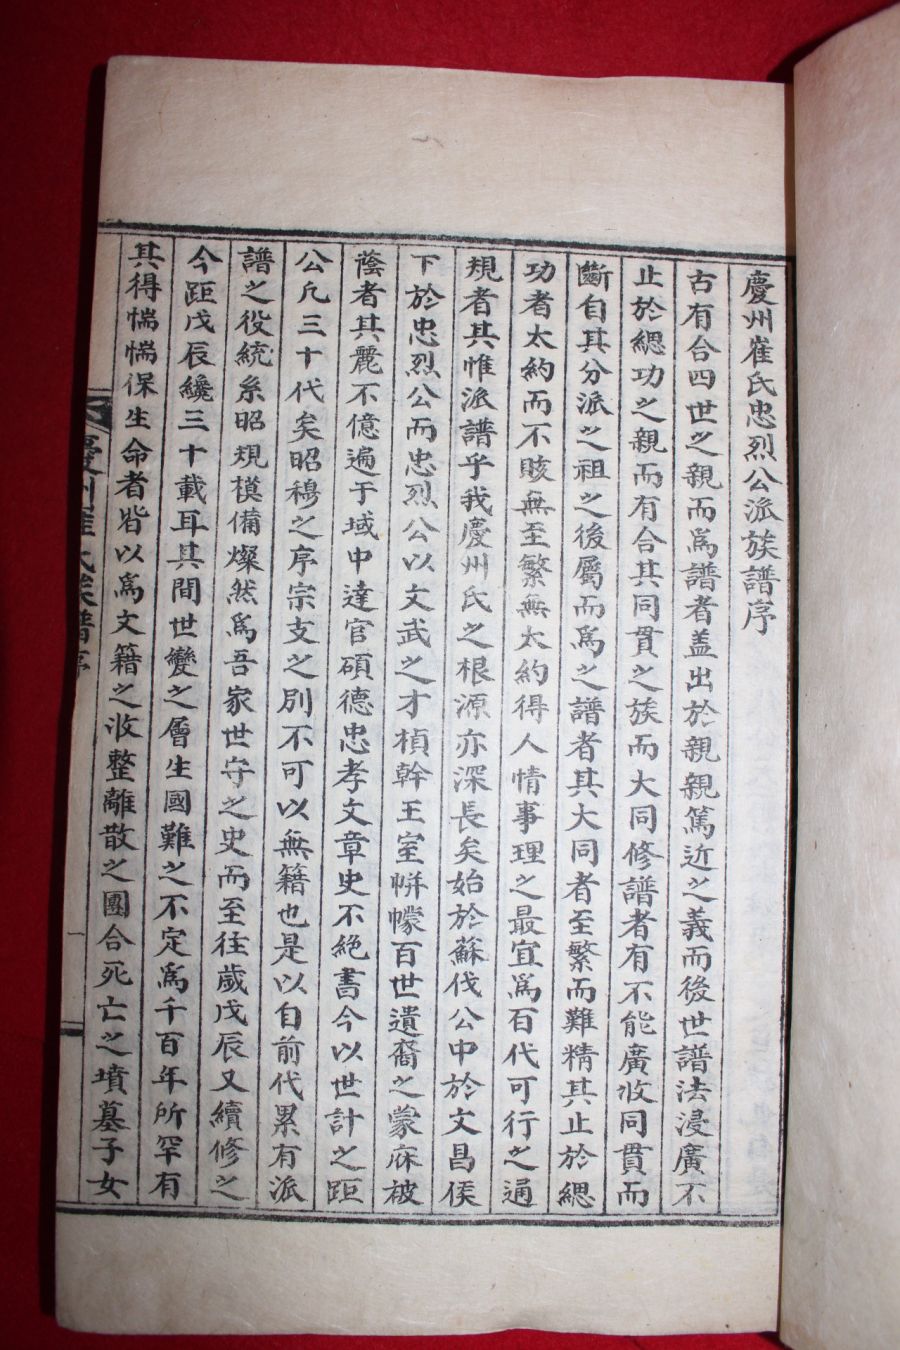 慶州崔氏忠烈公派族譜序
古有合四世之親而爲譜者盖出於親親篤近之義而後世譜法浸廣不
止於緦功之親而有合其同貫之族而大同修譜者有不能廣收同貫而
斷自其分派之祖之後屬而爲之譜者其大同者至繁而難精其止於緦
功者太約而不賅無至繁無太約得人情事理之最宜爲百代可行之通
規者其惟派譜乎我慶州氏之根源亦深長矣始於蘇伐公中於文昌侯
下於忠烈公而忠烈公以文武之才楨幹王室帡幪百世遺裔之蒙庥被
蔭者其麗不億遍于域中達官碩德忠孝文章史不絶書今以世計之距
公凡三十代矣昭穆之序宗支之別不可以無籍也是以自前代累有派
譜之役統系昭規模備燦然爲吾家世守之史而至往歲戊辰又續修之
今距戊辰纔三十載耳其間世變之層生國難之不定爲千百年所罕有
其得惴惴保生命者皆以爲文籍之收整離散之團合死亡之墳墓子女
慶州崔氏族譜序
一